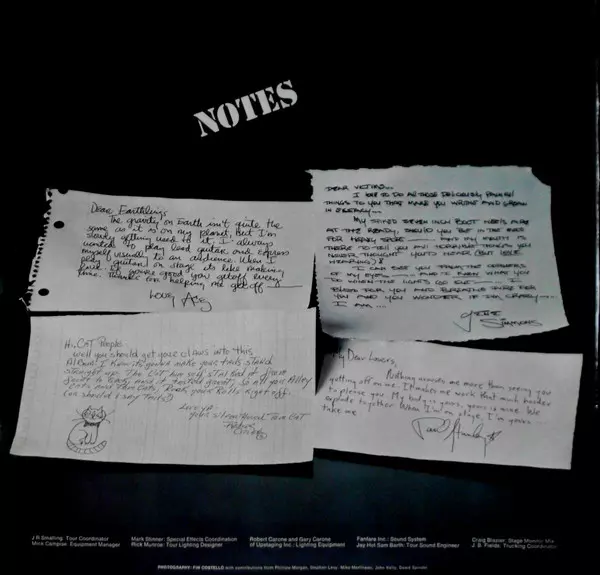 NOTES
Dear Earthlings,
The gravity on Earth isn't quite the
same as it is on my planet, but I'm
slowly getting used to it. I always
wanted to play lead guitar and express
myself visually to an audience. When I
play guitar on stage its like making
love. If you're good you get off every
time. Thanks for helping me get off
LOVE, Ace
DEAR VICTIMS...
I LOVE TO DO ALL THOSE DELICIOUSLY PAINFUL
THINGS TO YOU THAT MAKE YOU WRITHE AND GROAN
IN ECSTASY...
MY SPIKED SEVEN INCH BOOT HEELS ARE
AT THE READY, SHOULD YOU BE IN THE MOOD
FOR HEAVY SPORT AND MY MOUTH IS
THERE TO TELL YOU ALL THE NAUGHTY THINGS YOU
NEVER THOUGHT YOU'D HEAR (BUT LOVE
HEARING)!
I CAN SEE YOU FROM THE CORNERS
OF MY EYES AND I KNOW WHAT YOU
DO WHEN THE LIGHTS GO OUT I
BLEED FOR YOU AND BREATHE FIRE FOR
YOU AND YOU WONDER IF I'M CRAZY
I AM...
GENE
SIMMONS
Hi, CAT People
well you should get your claws into this
Album! I think its gonna make your tails stand
straight up.
and it tasted great, so all you Alley
Cats and
(or should I say Tails)
Love ya
your
My Dear Lovers,
Nothing arouses me more than seeing you
getting off on me. It makes me work that much harder
to please you. My body is yours, yours is mine. We
explode together. When I'm on stage, I'm yours
take me.
Paul Stanley
J R Smalling: Tour Coordinator
Mick Campise: Equipment Manager
Mark Stinner: Special Effects Coordination
Rick Munroe: Tour Lighting Designer
Robert Carone and Gary Carone
of Upstaging Inc.: Lighting Equipment
Fanfare Inc.: Sound System
Jay Hot Sam Barth: Tour Sound Engineer
Craig Brazier: Stage Monitor Mix
J. B. Fields: Trucking Coordinator
PHOTOGRAPHY: FIN COSTELLO with contributions from